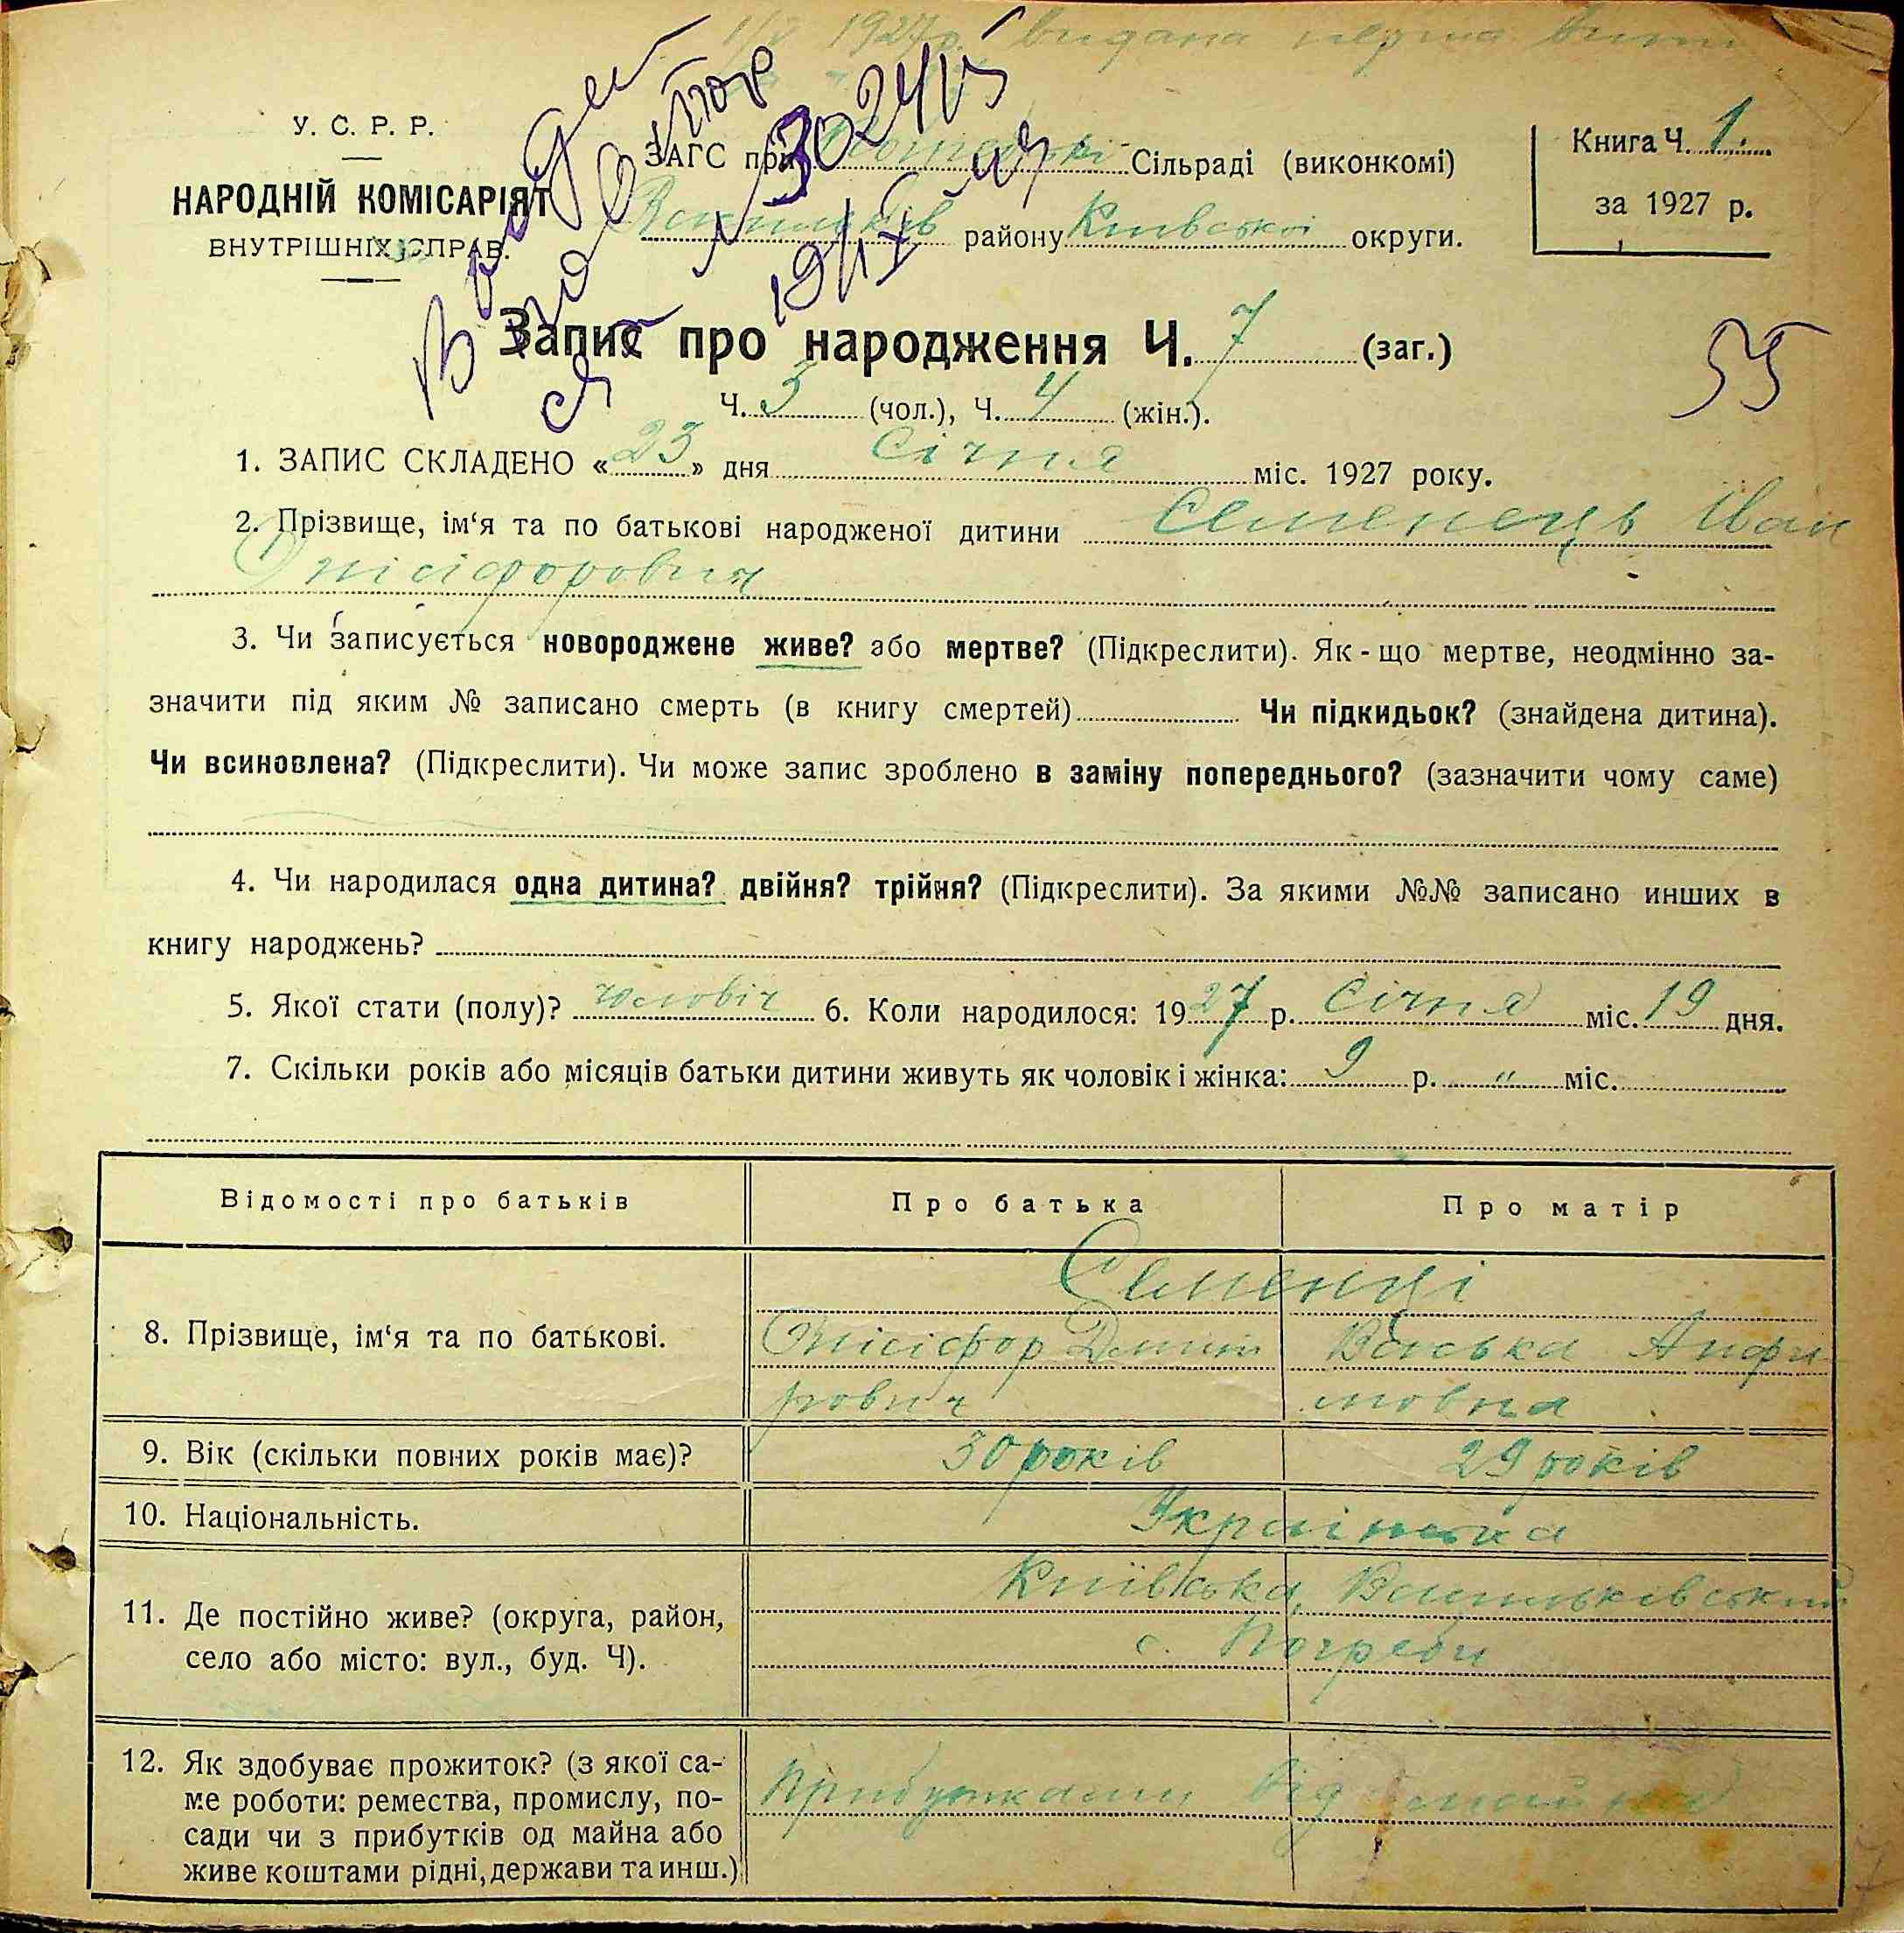 1/V 1927р. видана перша
У. С. Р. Р.
НАРОДНІЙ КОМІСАРІЯТ
ВНУТРІШНІХ СПРАВ.
ЗАГС при Сільраді (виконкомі)
Васильків району Київської округи.
Книга Ч. 1.
за 1927 р.
19/IX
Запис про народження Ч. 7 (заг.)
Ч. 3 (чол.), Ч. 4 (жін.).
55
1. ЗАПИС СКЛАДЕНО «23» дня Січня міс. 1927 року.
2. Прізвище, ім‘я та по батькові народженої дитини Семенець Іван
Онісіфорович
3. Чи записується новороджене живе? або мертве? (Підкреслити). Як-що мертве, неодмінно за-
значити під яким № записано смерть (в книгу смертей) Чи підкидьок? (знайдена дитина).
Чи всиновлена? (Підкреслити). Чи може запис зроблено в заміну попереднього? (зазначити чому саме)
4. Чи народилася одна дитина? двійня? трійня? (Підкреслити). За якими №№ записано инших в
книгу народжень?
5. Якої стати (полу)? чоловіч 6. Коли народилося: 1927 р. Січня міс. 19 дня.
7. Скільки років або місяців батьки дитини живуть як чоловік і жінка: 9 р. " міс.
Відомості про батьків Про батька Про матір
Семенці
8. Прізвище, ім‘я та по батькові. Онісіфор Дмит Васька Анфи
рович мовна
9. Вік (скільки повних років має)? 30 років 29 років
10. Національність. Українська
11. Де постійно живе? (округа, район, Київська, Васильківський
село або місто: вул., буд. Ч). с. Погреби
12. Як здобуває прожиток? (з якої са-
ме роботи: ремества, промислу, по- Прибутками від майна
сади чи з прибутків од майна або
живе коштами рідні, держави та инш.)